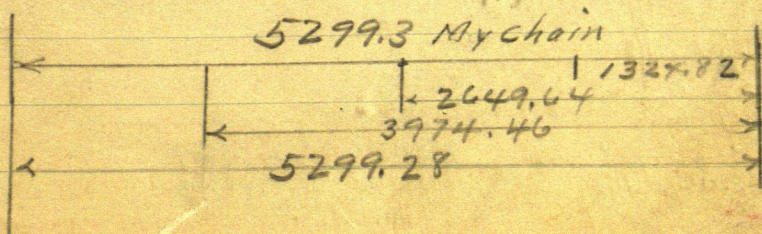 5299.3 My Chain
1324.82
2649.64
3974.46
5299.28